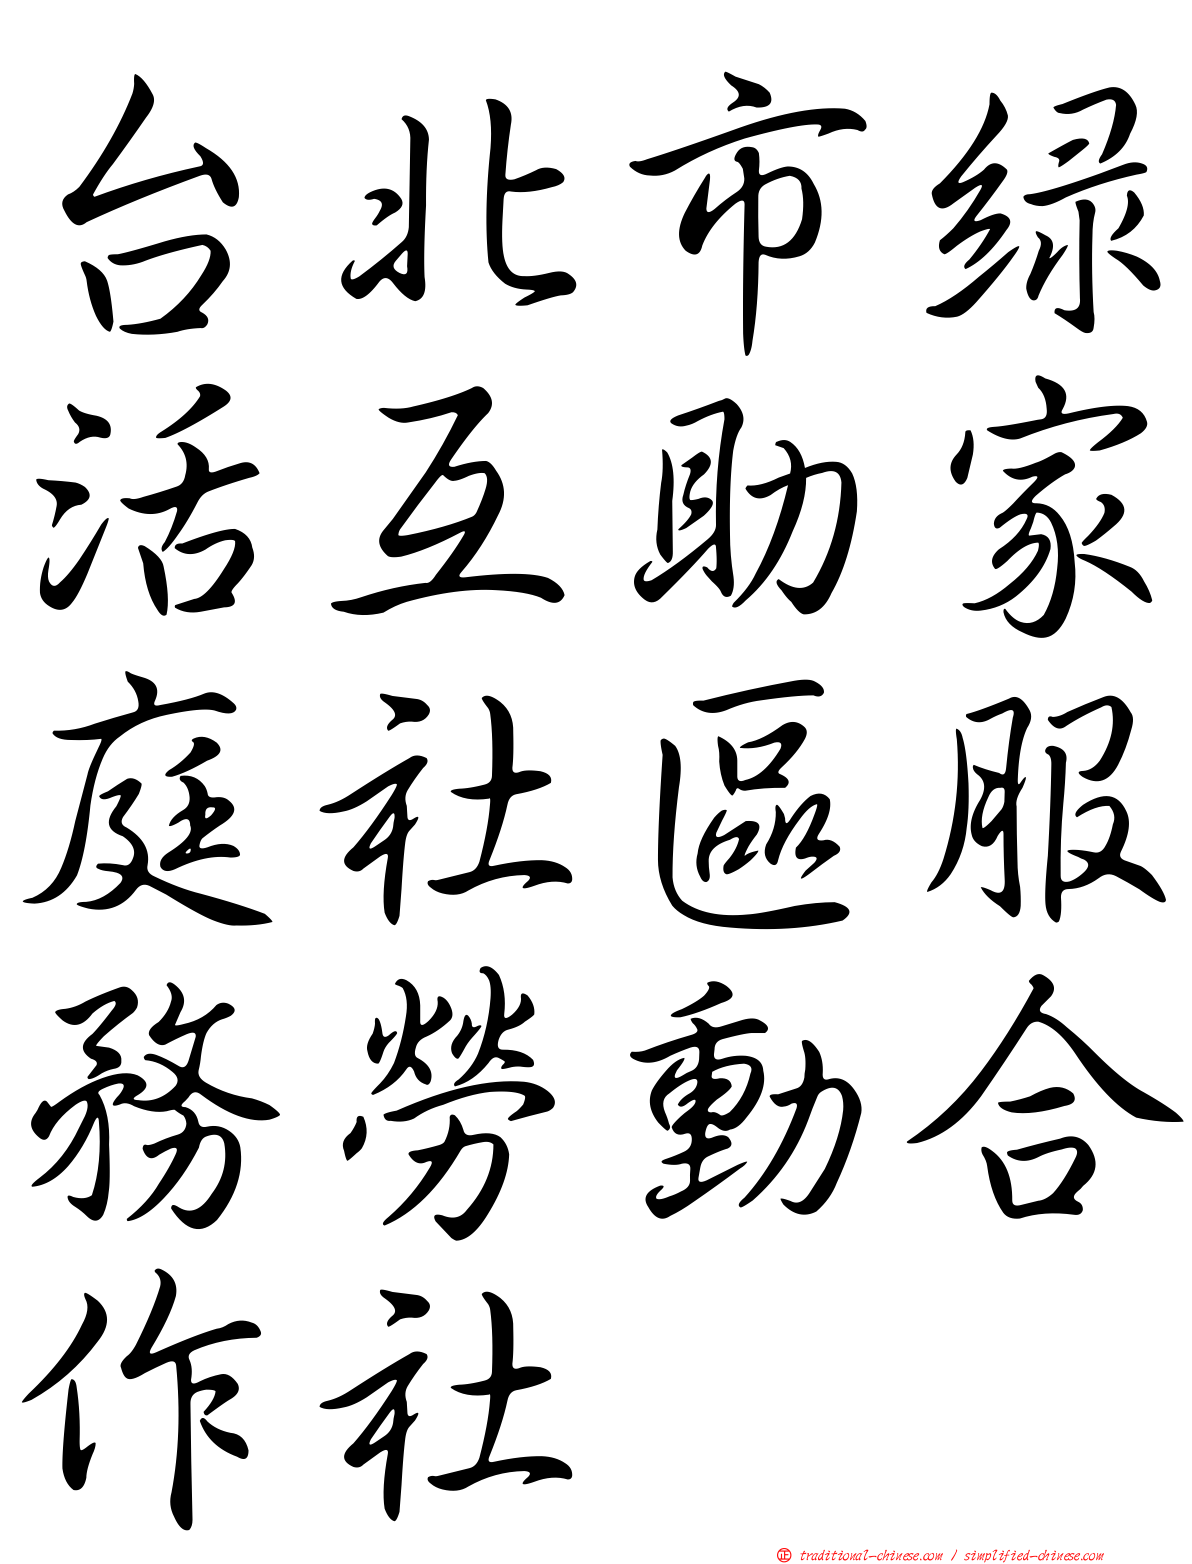 台北市緑
活互助家
庭社區服
務勞動合
作社
正 traditional-chinese.com / simplified-chinese.com